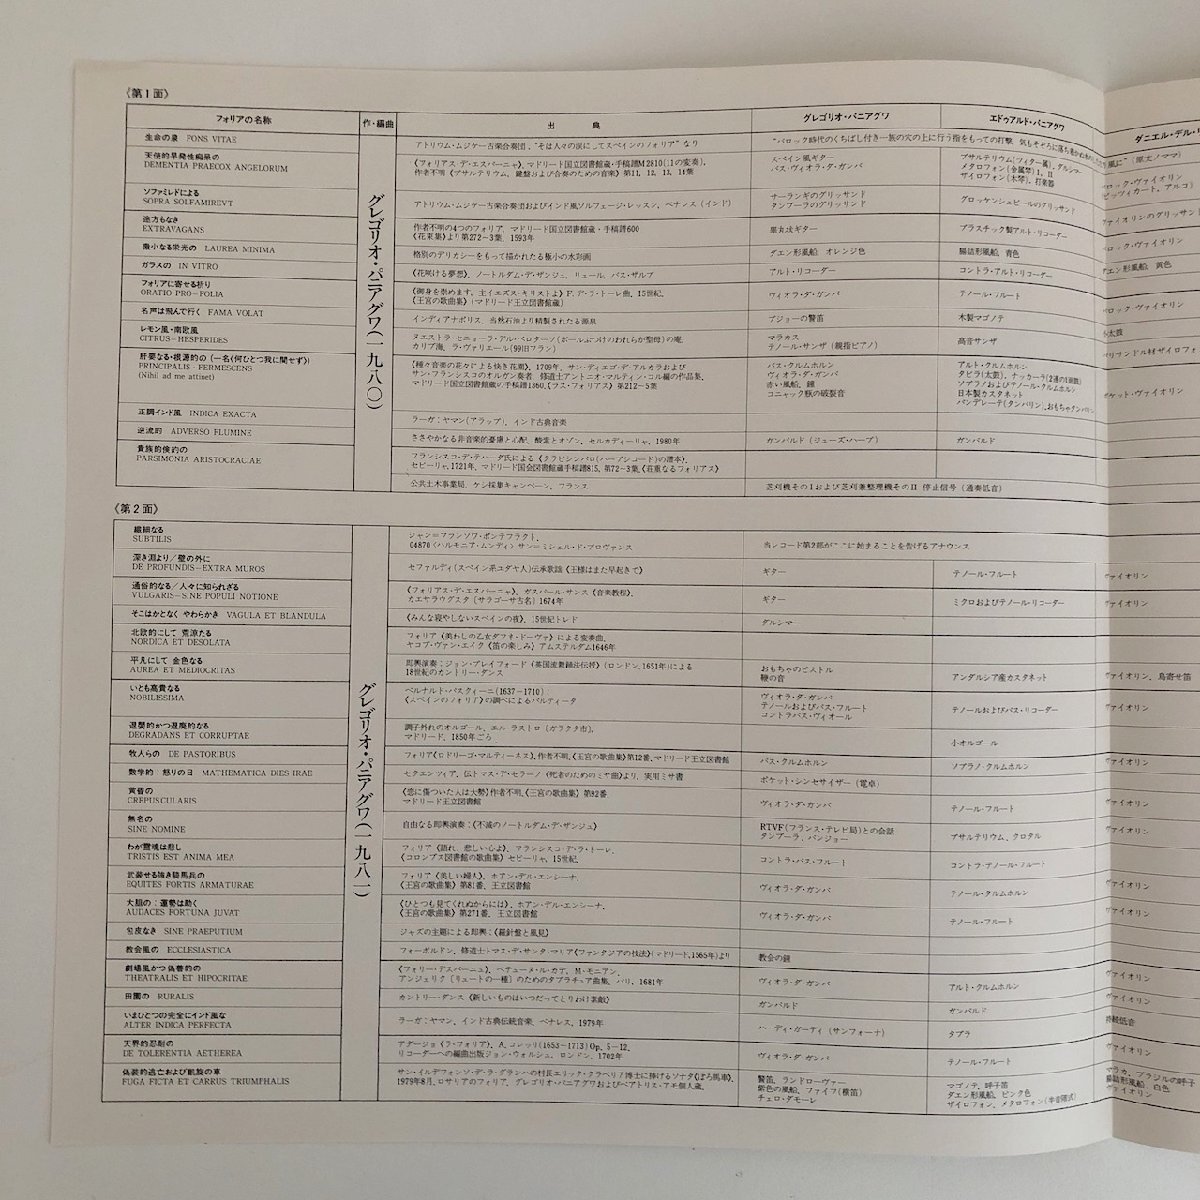 《第1面》
フォリアの名称
作・編曲
出典
グレゴリオ・パニアグワ
エドゥアルド・パニアグワ
ダニエル・デル・
グレゴリオ・パニアグワ(一九八〇)
生命の泉 FONS VITAE
アトリウム・ムジケー古楽合奏団、"そは人々の涙にしてスペインのフォリア"なり
天使的早発性痴呆の
DEMENTIA PRAECOX ANGELORUM
《フォリアス・デ・エスパーニャ》、マドリード国立図書館蔵・手稿譜M2810
作者不明《プサルテリウム、鍵盤および合奏のための音楽》第11、12、13、14葉
スペイン風ギター
バス・ヴィオラ・ダ・ガンバ
プサルテリウム(ツィター属)、ダルシマー
メタロフォン(金属琴)I、II
ザイロフォン(木琴)、打楽器
ソファミレドによる
SOPRA SOLFAMIREVT
アトリウム・ムジケー古楽合奏団およびインド風ソルフェージ・レッスン、ベナレス(インド)
サーランギのグリッサンド
タンブーラのグリッサンド
グロッケンシュピールのグリッサンド
途方もなき
EXTRAVAGANS
作者不明の4つのフォリア、マドリード国立図書館蔵・手稿譜600
《花束集》より第272-3葉、1593年
プラスチック製アルト・リコーダー
微小なる栄光の LAUREA MINIMA
格別のデリカシーをもって描かれたる極小の水彩画
ダエン形風船、オレンジ色
腸詰形風船、青色
ガラスの IN VITRO
《花咲ける夢想》、ノートルダム・デ・ザンジュ、リュール、バス・ザルプ
アルト・リコーダー
コントラ・アルト・リコーダー
フォリアに寄せる祈り
ORATIO PRO-FOLIA
《御身を崇めます、主イエズス・キリストよ》F.デ・ラ・トーレ曲、15世紀、
《王宮の歌曲集》(マドリード王立図書館蔵)
ヴィオラ・ダ・ガンバ
テノール・フルート
名声は飛んで行く FAMA VOLAT
インディアナポリス、当然石油より精製されたる源泉
プジョーの警笛
木製マゴノテ
レモン風・南欧風
CITRUS-HESPERIDES
カリブ海、ラ・ヴァリエール(99旧フラン)
マラカス
テノール・サンザ(親指ピアノ)
高音サンザ
肝要なる・根源的の(一名《何ひとつ我に関せず》)
PRINCIPALIS-FERMESCENS
(Nihil ad me attiset)
《種々音楽の花々による焼き花圃》、1709年、サン・ディエゴ・デ・アルカラおよび
サン・フランシスコのオルガン奏者 修道士アントニオ・マルティン・コル編の作品集、
マドリード国立図書館蔵の手稿譜1360、《ラス・フォリアス》第212-5葉
バス・クルムホルン
ヴィオラ・ダ・ガンバ
赤い風船、鐘
コニャック瓶の破裂音
アルト・クルムホルン
ソプラノおよびテノール・クルムホルン
日本製カスタネット
パンデレータ(タンバリン)、おもちゃタンバリン
正調インド風 INDICA EXACTA
ラーガ:ヤマン(アラップ)、インド古典音楽
逆流的 ADVERSO FLUMINE
ささやかなる非音楽的憂慮と心配、酸塩とオゾン、セルカディーリャ、1980年
ガンバルド(ジューズ・ハープ)
ガンバルド
貴族的倹約の
PARSIMONIA ARISTOCRACIAE
セビーリャ、1721年、マドリード国会図書館蔵手稿譜815、第72-3葉、《荘重なるフォリアス》
公共土木事業局、ケシ採集キャンペーン、フランス
芝刈機その I および芝刈兼整理機その II 停止信号(通奏低音)
《第2面》
グレゴリオ・パニアグワ(一九八一)
繊細なる
SUBTILIS
ジャン=フランソワ・ポンテフラクト、
G4870《ハルモニア・ムンディ》サン=ミシェル・ド・プロヴァンス
当レコード第2部がここに始まることを告げるアナウンス
深き淵より/壁の外に
DE PROFUNDIS-EXTRA MUROS
セファルディ(スペイン系ユダヤ人)伝承歌謡《王様はまた早起きて》
ギター
テノール・フルート
ヴァイオリン
通俗的なる/人々に知られざる
VULGARIS-SINE POPULI NOTIONE
《フォリアス・デ・エスパーニャ》、ガスパール・サンス《音楽教程》、
カエサラウグスタ(サラゴーサ古名)1674年
ギター
ミクロおよびテノール・リコーダー
ヴァイオリン
そこはかとなく やわらかき VAGULA ET BLANDULA
《みんな寝やしないスペインの夜》、15世紀トレド
ダルシマ
北欧的にして 荒涼たる
NORDICA ET DESOLATA
フォリア《美わしの乙女ダフネ・ドーヴァ》による変奏曲、
ヤコブ・ヴァン・エイク《笛の楽しみ》アムステルダム1646年
平凡にして 金色なる
AUREA ET MEDIOCRITAS
即興演奏:ジョン・プレイフォード《英国流舞踊法伝授》(ロンドン、1651年)による
18世紀のカントリー・ダンス
鞭の音
アンダルシア産カスタネット
ヴァイオリン、鳥寄せ笛
いとも高貴なる
NOBILISSIMA
ベルナルト・パスクィーニ(1637-1710):
《スペインのフォリア》の調べによるパルティータ
ヴィオラ・ダ・ガンバ
テノールおよびバス・フルート
コントラバス・ヴィオール
テノールおよびバス・リコーダー
ヴァイオリン
退歴的かつ退廃的なる
DEGRADANS ET CORRUPTAE
調子外れのオルゴール、エル・ラストロ(ガラクタ市)、
マドリード、1850年ごろ
小オルゴール
牧人らの DE PASTORIBUS
フォリア《ロドリーゴ・マルティーネス》、作者不明、《王宮の歌曲集》第12番、マドリード王立図書館
バス・クルムホルン
ソプラノ・クルムホルン
ヴァイオリン
数学的 怒りの日 MATHEMATICA DIES IRAE
セクエンツィア、伝トマス・デ・セラーノ《死者のためのミサ曲》より、実用ミサ書
ポケット・シンセサイザー(電卓)
黄昏の
CREPUSCULARIS
《恋に傷ついた人は大勢》作者不明、《王宮の歌曲集》第82番
マドリード王立図書館
ヴィオラ・ダ・ガンバ
テノール・フルート
ヴァイオリン
無名の
SINE NOMINE
自由なる即興演奏:《不滅のノートルダム・デ・ザンジュ》
RTVF(フランス・テレビ局)との会話
タンブーラ、バンジョー
プサルテリウム、クロタル
わが霊魂は悲し
TRISTIS EST ANIMA MEA
フォリア《語れ、悲しい心よ》、フランシスコ・デ・ラ・トーレ、
《コロンブス図書館の歌曲集》セビーリャ、15世紀、
コントラ・バス・フルート
コントラ・テノール・フルート
武装せる強き騎馬兵の
EQUITES FORTIS ARMATURAE
フォリア《美しい婦人》、ホアン・デル・エンシーナ、
《王宮の歌曲集》第81番、王立図書館
ヴィオラ・ダ・ガンバ
テノール・クルムホルン
ヴァイオリン
大胆の:運勢は助く
AUDACES FORTUNA JUVAT
《ひとつも見てくれぬからには》、ホアン・デル・エンシーナ、
《王宮の歌曲集》第271番、王立図書館
ヴィオラ・ダ・ガンバ
テノール・フルート
ヴァイオリン
包皮なき SINE PRAEPUTIUM
ジャズの主題による即興:《羅針盤と風見》
教会風の ECCLESIASTICA
フォーボルドン、修道士トマス・デ・サンタ・マリア《ファンタジアの技法》(マドリード、1565年)より
教会の鐘
劇場風かつ偽善的の
THEATRALIS ET HIPOCRITAE
アンジェリク[リュートの一種]のためのタブラチュア曲集、パリ、1681年
ヴィオラ・ダ・ガンバ
アルト・クルムホルン
ヴァイオリン
田園の RURALIS
カントリー・ダンス《新しいものはいつだってとりわけ素敵》
ガンバルド
ガンバルド
ヴァイオリン
いまひとつの完全にインド風な
ALTER INDICA PERFECTA
ラーガ:ヤマン、インド古典伝統音楽、ベナレス、1979年
タブラ
持続低音
天界的忍耐の
DE TOLERENTIA AETHEREA
アダージョ《ラ・フォリア》、A.コレッリ(1653-1713)Op. 5-12、
リコーダーへの編曲出版ジョン・ウォルシュ、ロンドン、1702年
ヴィオラ・ダ・ガンバ
テノール・フルート
ヴァイオリン
偽装的逃亡および凱旋の車
FUGA FICTA ET CARRUS TRIUMPHALIS
サン・イルデフォンソ・デ・ラ・グランハの村長エリック・クラペリィ博士に捧げるソナタ《ぼろ馬車》、
1979年8月、ロサリアのフォリア、グレゴリオ・パニアグワおよびベアトリス・アモ個人蔵、
警笛、ランドローヴァー
紫色の風船、ファイフ(横笛)
チェロ・ダモーレ
マゴノテ、呼子笛
ダエン形風船、ピンク色
ザイロフォン、メタロフォン(半音階式)
マラカ、ブラジルの呼子
腸詰形風船、白色
ヴァイオリン